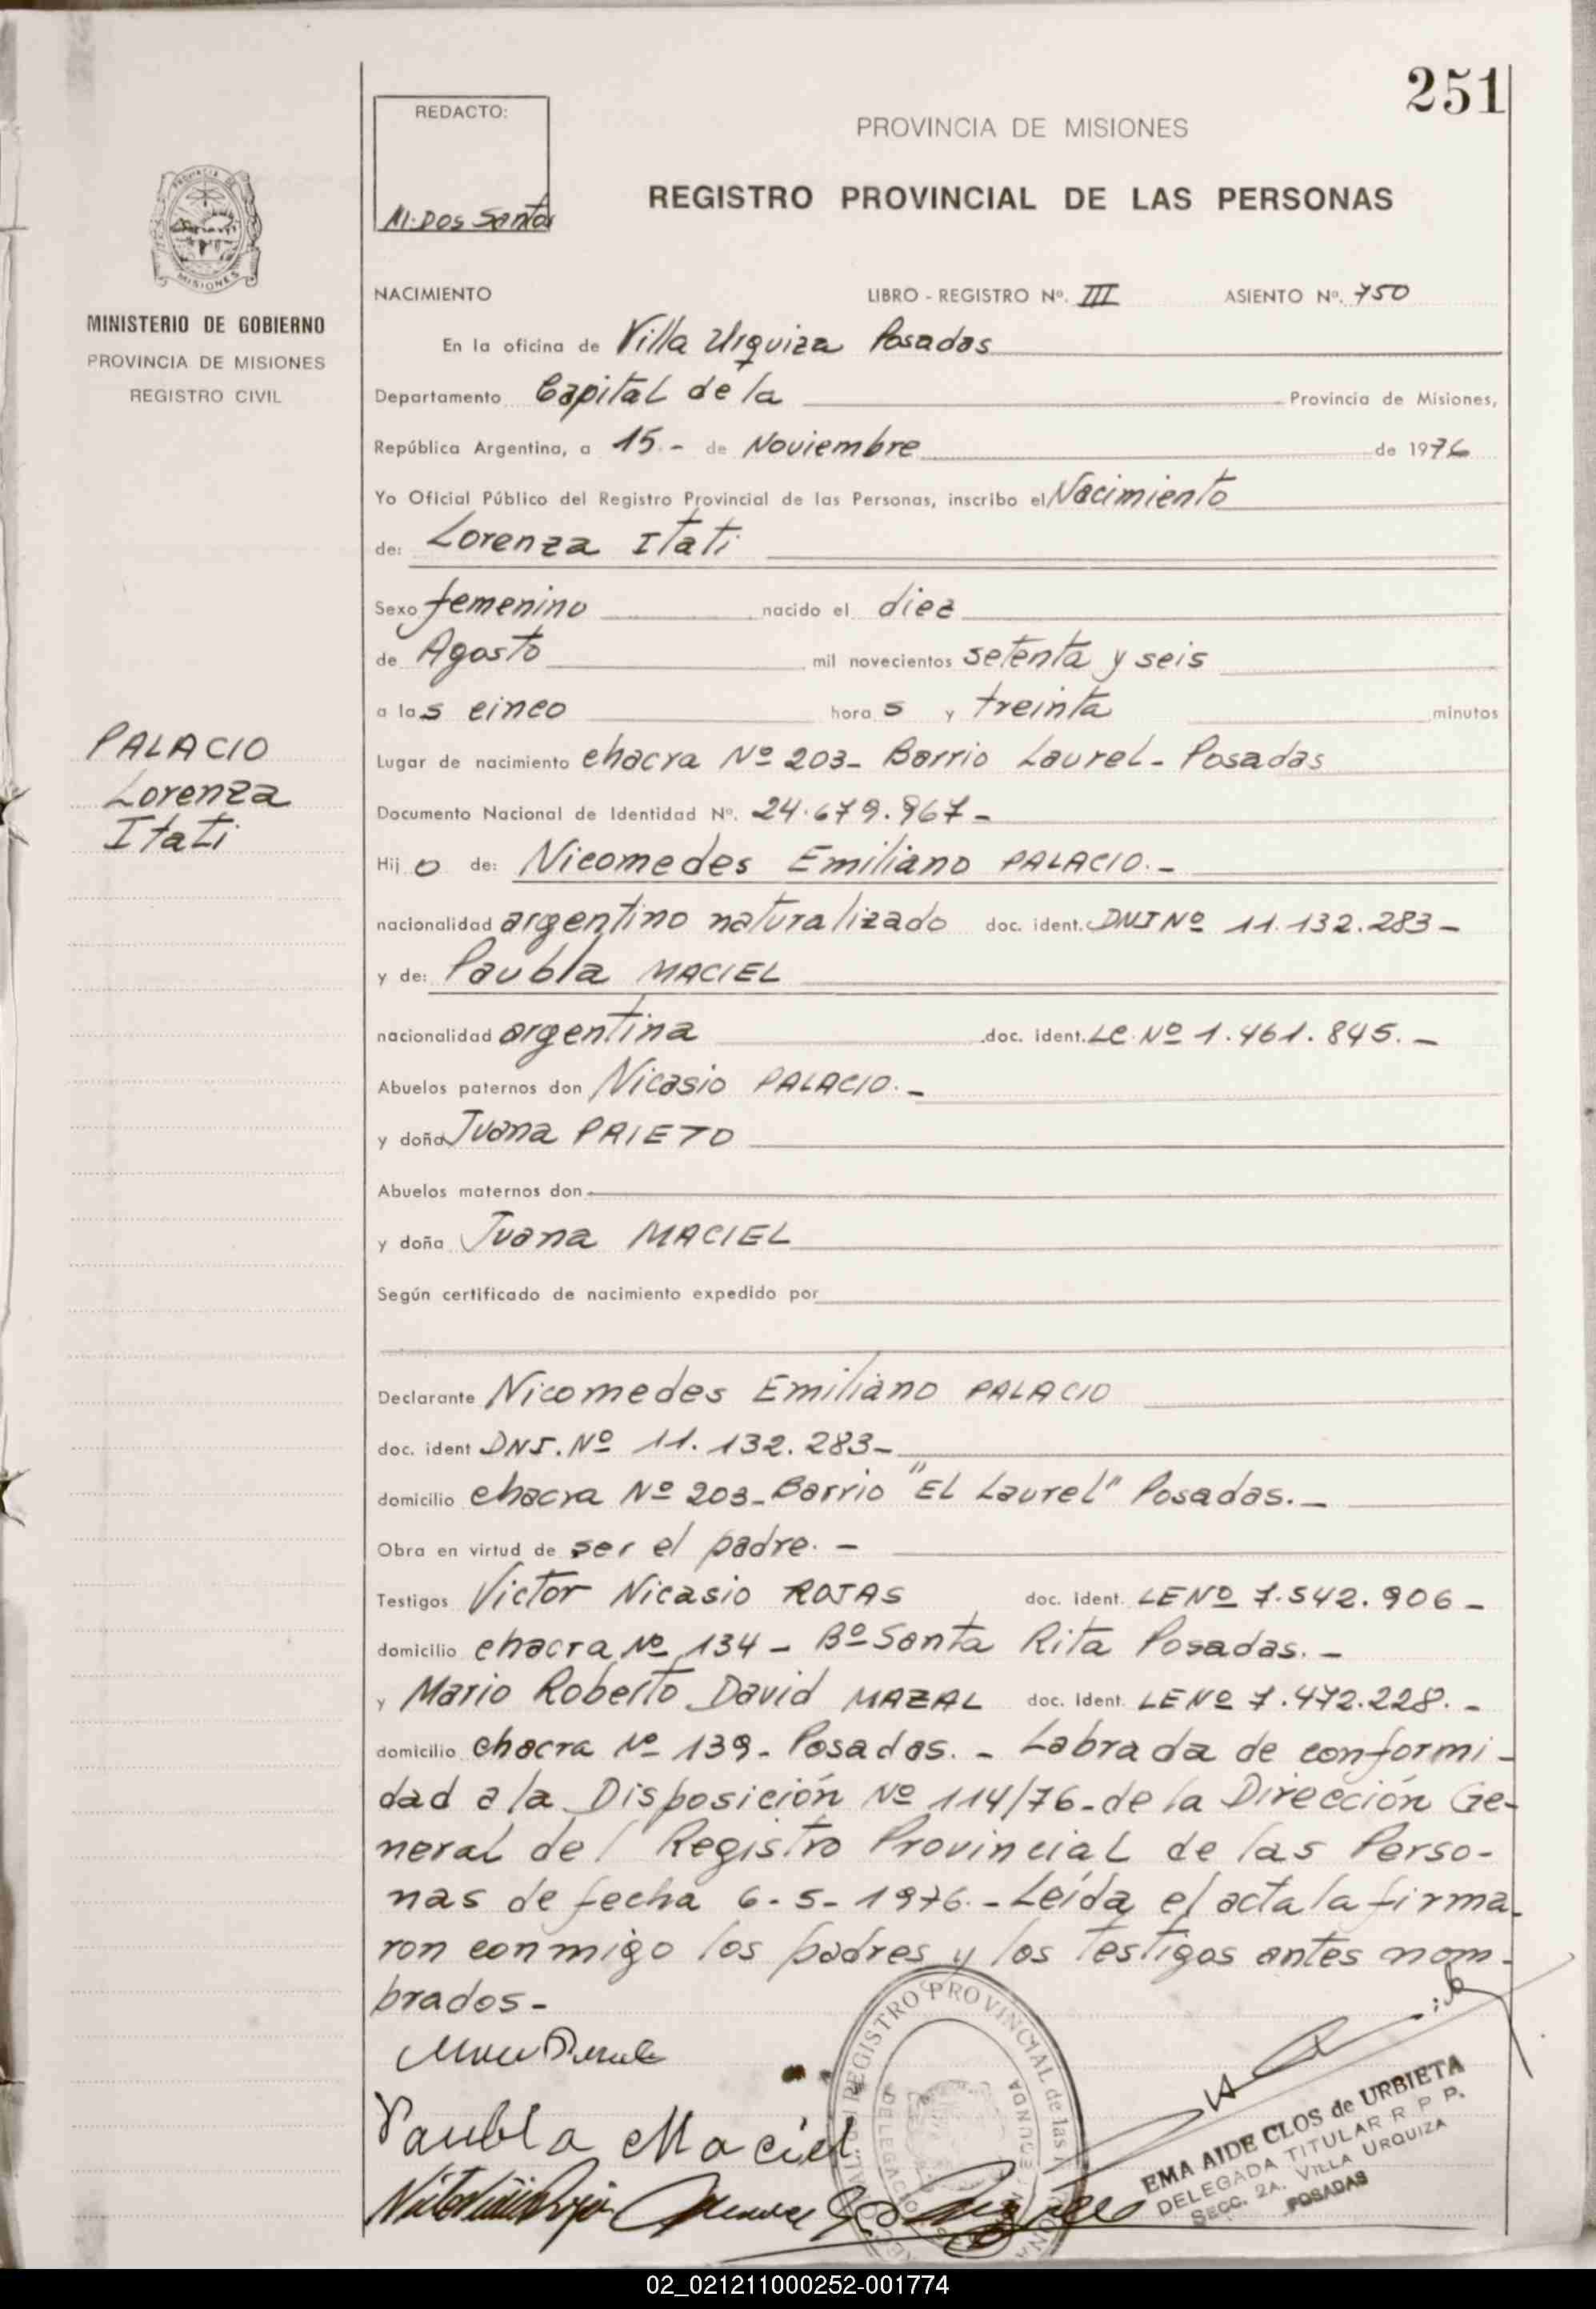 251
REDACTO:
M. Dos Santos
PROVINCIA DE MISIONES
REGISTRO PROVINCIAL DE LAS PERSONAS
PROVINCIA DE
MISIONES
MINISTERIO DE GOBIERNO
PROVINCIA DE MISIONES
REGISTRO CIVIL
NACIMIENTO LIBRO - REGISTRO Nº. III ASIENTO Nº. 750
En la oficina de Villa Urquiza Posadas
Departamento Capital de la Provincia de Misiones,
República Argentina, a 15.- de Noviembre de 1976
Yo Oficial Público del Registro Provincial de las Personas, inscribo el Nacimiento
de: Lorenza Itati
Sexo femenino nacido el diez
de Agosto mil novecientos setenta y seis
a las cinco horas y treinta minutos
PALACIO
Lorenza
Itati
Lugar de nacimiento chacra Nº 203- Barrio Laurel- Posadas
Documento Nacional de Identidad Nº. 24.679.967-
Hijo de: Nicomedes Emiliano PALACIO.-
nacionalidad argentino naturalizado doc. ident. DNI Nº 11.132.283-
y de: Paubla MACIEL
nacionalidad argentina doc. ident. LC. Nº 1.461.845.-
Abuelos paternos don Nicasio PALACIO.-
y doña Juana PRIETO
Abuelos maternos don
y doña Juana MACIEL
Según certificado de nacimiento expedido por
Declarante Nicomedes Emiliano PALACIO
doc. ident DNI. Nº 11.132.283-
domicilio chacra Nº 203- Barrio "El Laurel" Posadas.-
Obra en virtud de ser el padre.-
Testigos Victor Nicasio ROJAS doc. ident. LE Nº 7.542.906-
domicilio chacra Nº 134- Bº Santa Rita Posadas.-
y Mario Roberto David MAZAL doc. ident. LE Nº 7.472.228.-
domicilio chacra Nº 139- Posadas.- Labrada de conformi-
dad a la Disposición Nº 114/76- de la Dirección Ge-
neral del Registro Provincial de las Perso-
nas de fecha 6-5-1976.- Leída el acta la firma-
ron conmigo los padres y los testigos antes nom-
brados-
Paubla Maciel
REGISTRO PROVINCIAL de las
DELEGACION
SEGUNDA
EMA AIDE CLOS de URBIETA
DELEGADA TITULAR R P P.
SECC. 2A. VILLA URQUIZA
POSADAS
02_021211000252-001774